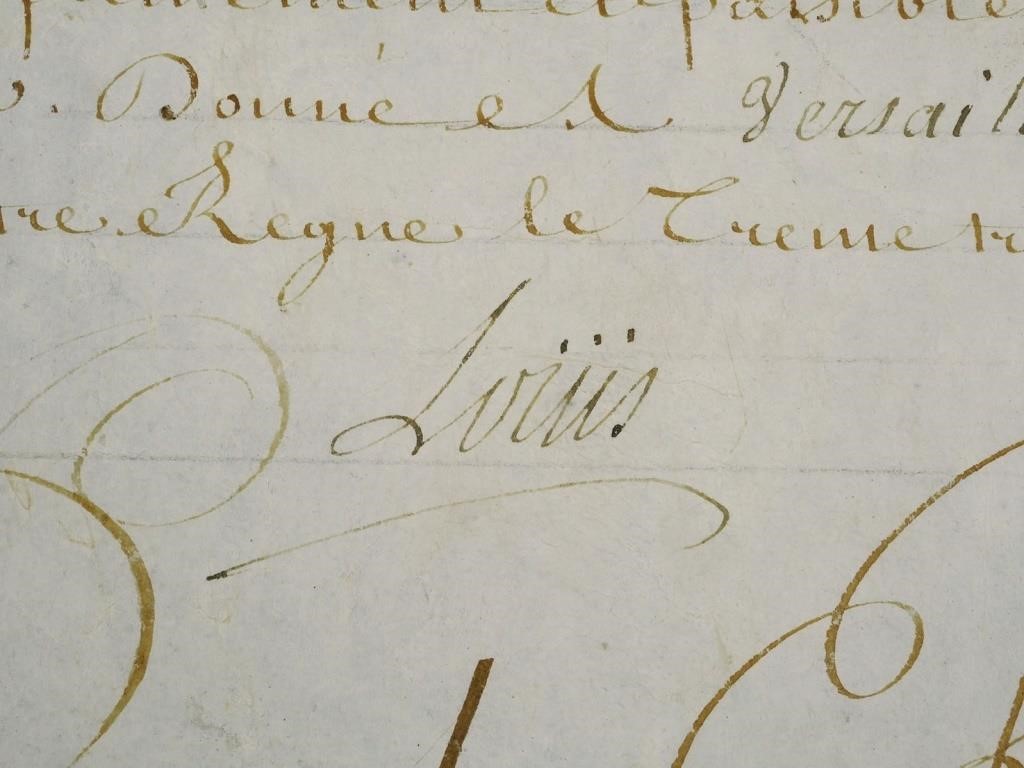 Donné et Versaill
tre Regne le Treme tr
Loüis